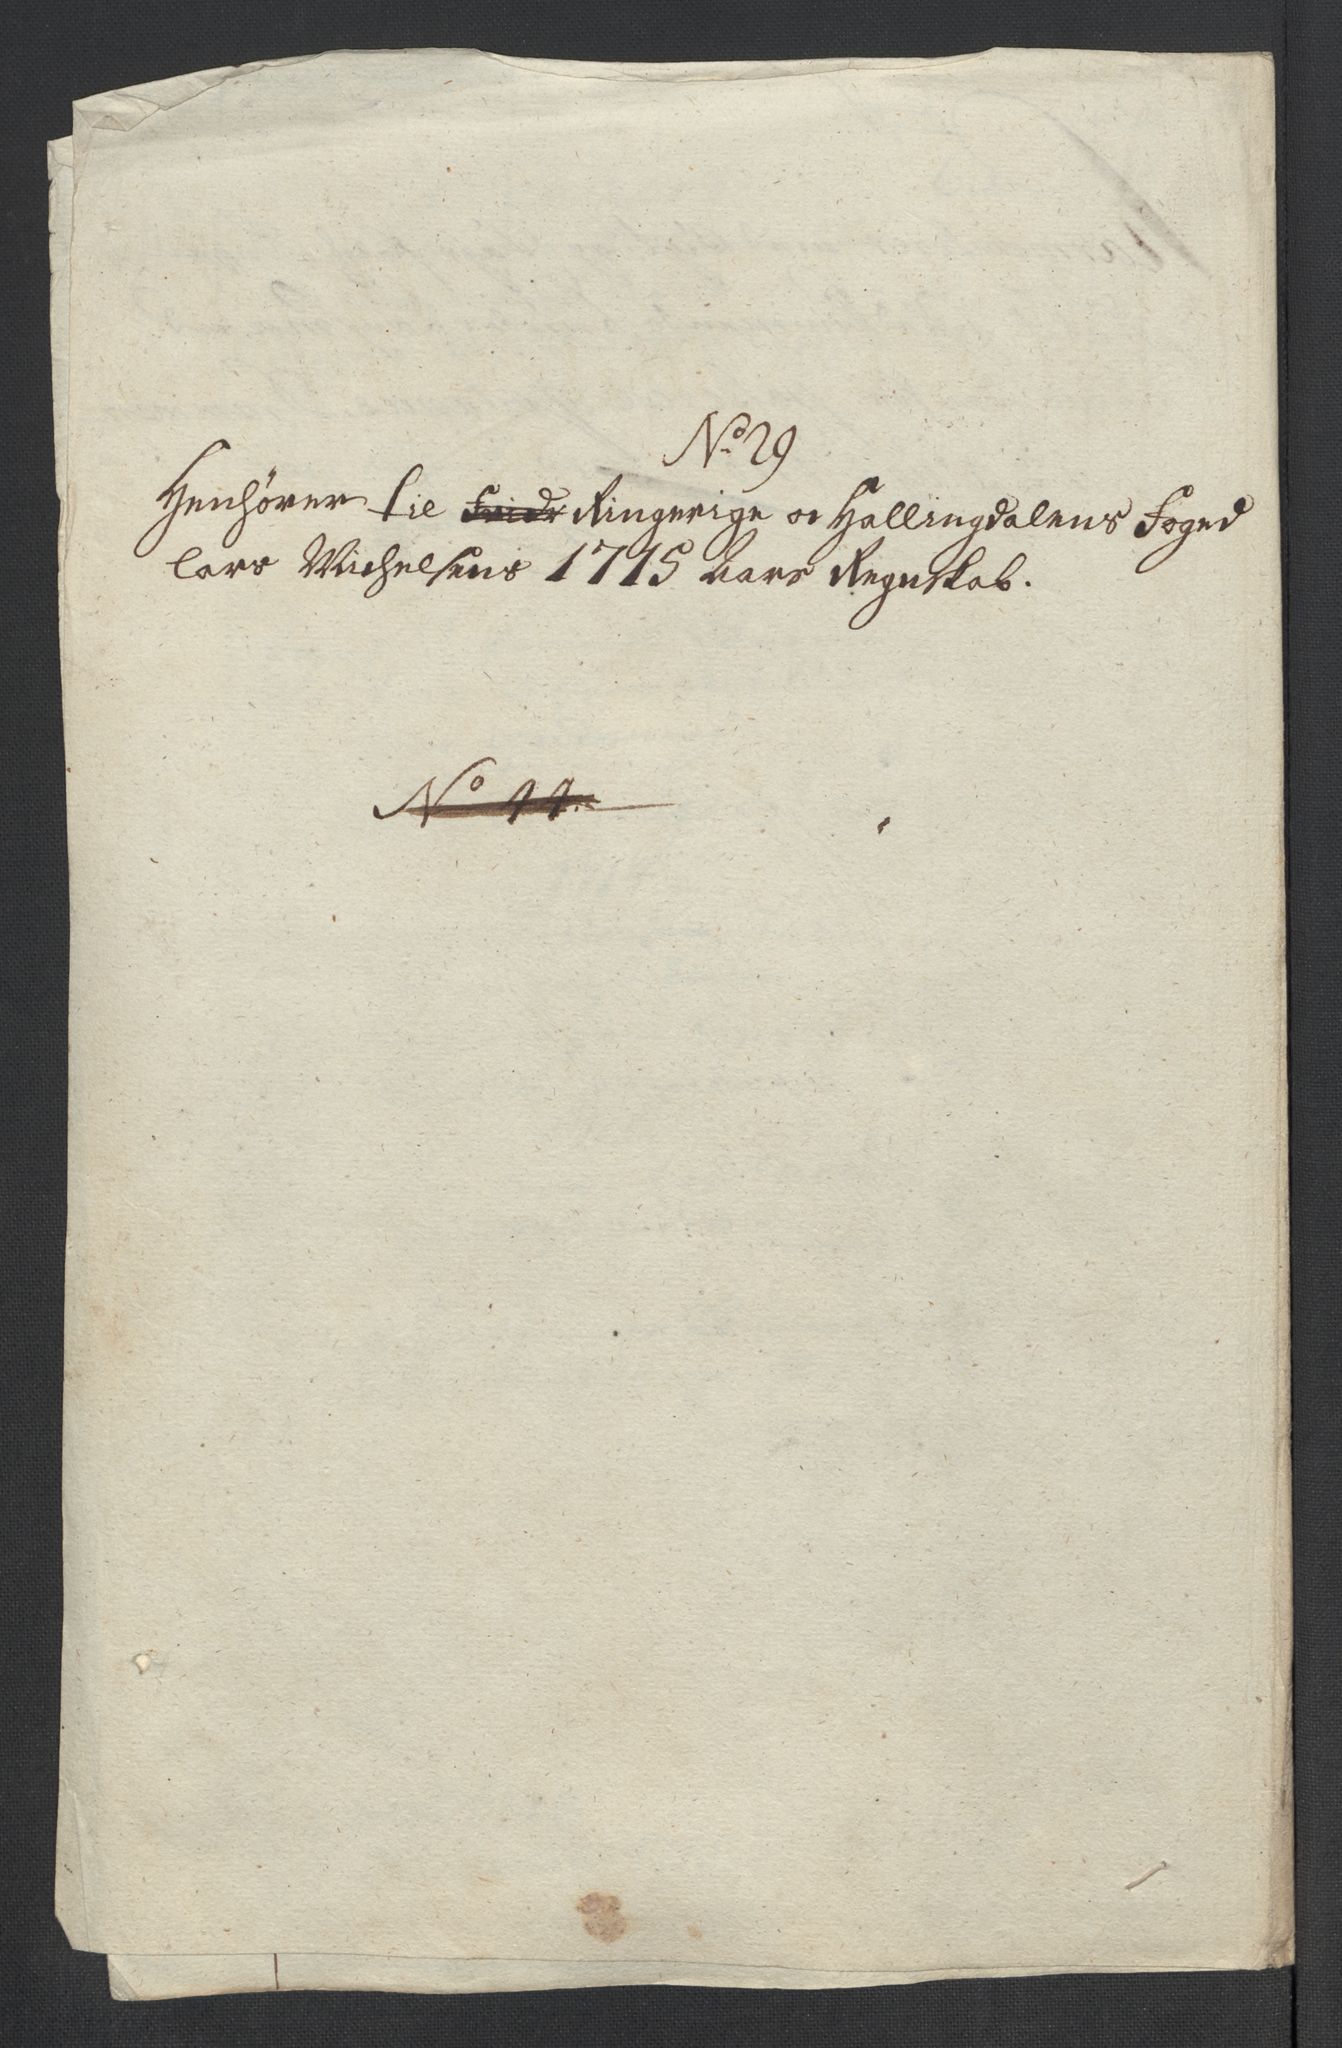 No 29
Henhörer til Fridr Ringerige oc Hallingdalens Foged
Lars Michelsens 1715 Aars Regnskab.
No 11.